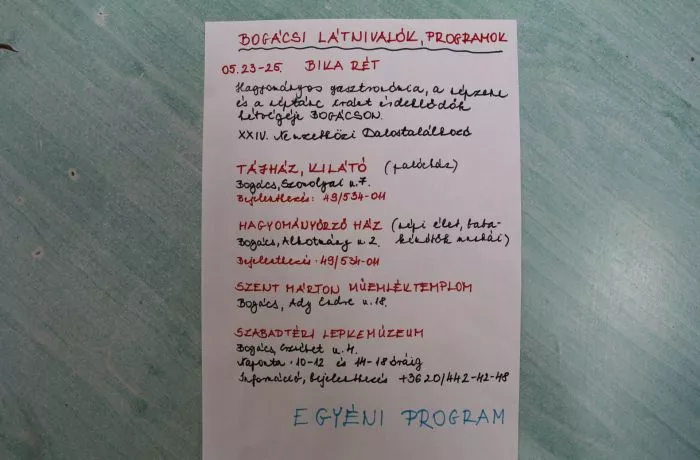 BOGÁCSI LÁTNIVALÓK, PROGRAMOK
05.23-25. BIKA RÉT
Hagyományos gasztronómia, a népzene
és a néptánc iránt érdeklődők
hétvégéje BOGÁCSON.
XXIV. Nemzetközi Dalostalálkozó
TÁJHÁZ, KILÁTÓ (palócház)
Bogács, Szomolyai u. 7.
Bejelentkezés: 49/534-011
HAGYOMÁNYŐRZŐ HÁZ (népi élet, baba-
Bogács, Alkotmány u 2. készítők munkái)
Bejelentkezés: 49/534-011
SZENT MÁRTON MŰEMLÉKTEMPLOM
Bogács, Ady Endre u. 18.
SZABADTÉRI LEPKEMÚZEUM
Bogács, Erzsébet u. 4.
Naponta: 10-12 és 14-18 óráig
Információ, bejelentkezés +3620/442-42-48
EGYÉNI PROGRAM